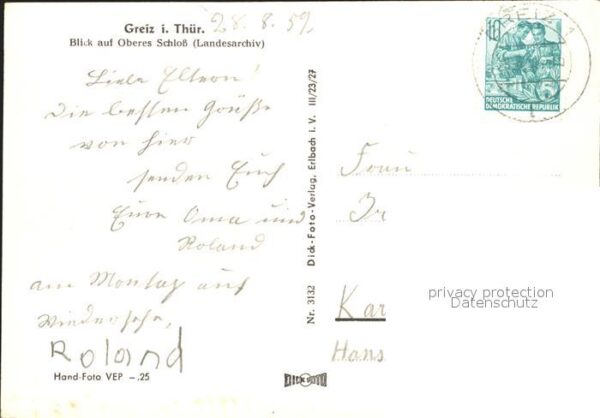 Greiz i. Thür. 28.8.59
Blick auf Oberes Schloß (Landesarchiv)
Liebe Eltern!
Die besten Grüße
von hier
senden Euch
Eure Oma und
Roland
am Montag auf
Wiedersehn,
Roland
Hand-Foto VEP -.25
Nr. 3132 Dick-Foto-Verlag, Erlbach i. V. III/23/27
DICK FOTO
GREIZ 1
10
5
DEUTSCHE
DEMOKRATISCHE REPUBLIK
Frau
Ir
Kar
Hans
privacy protection
Datenschutz